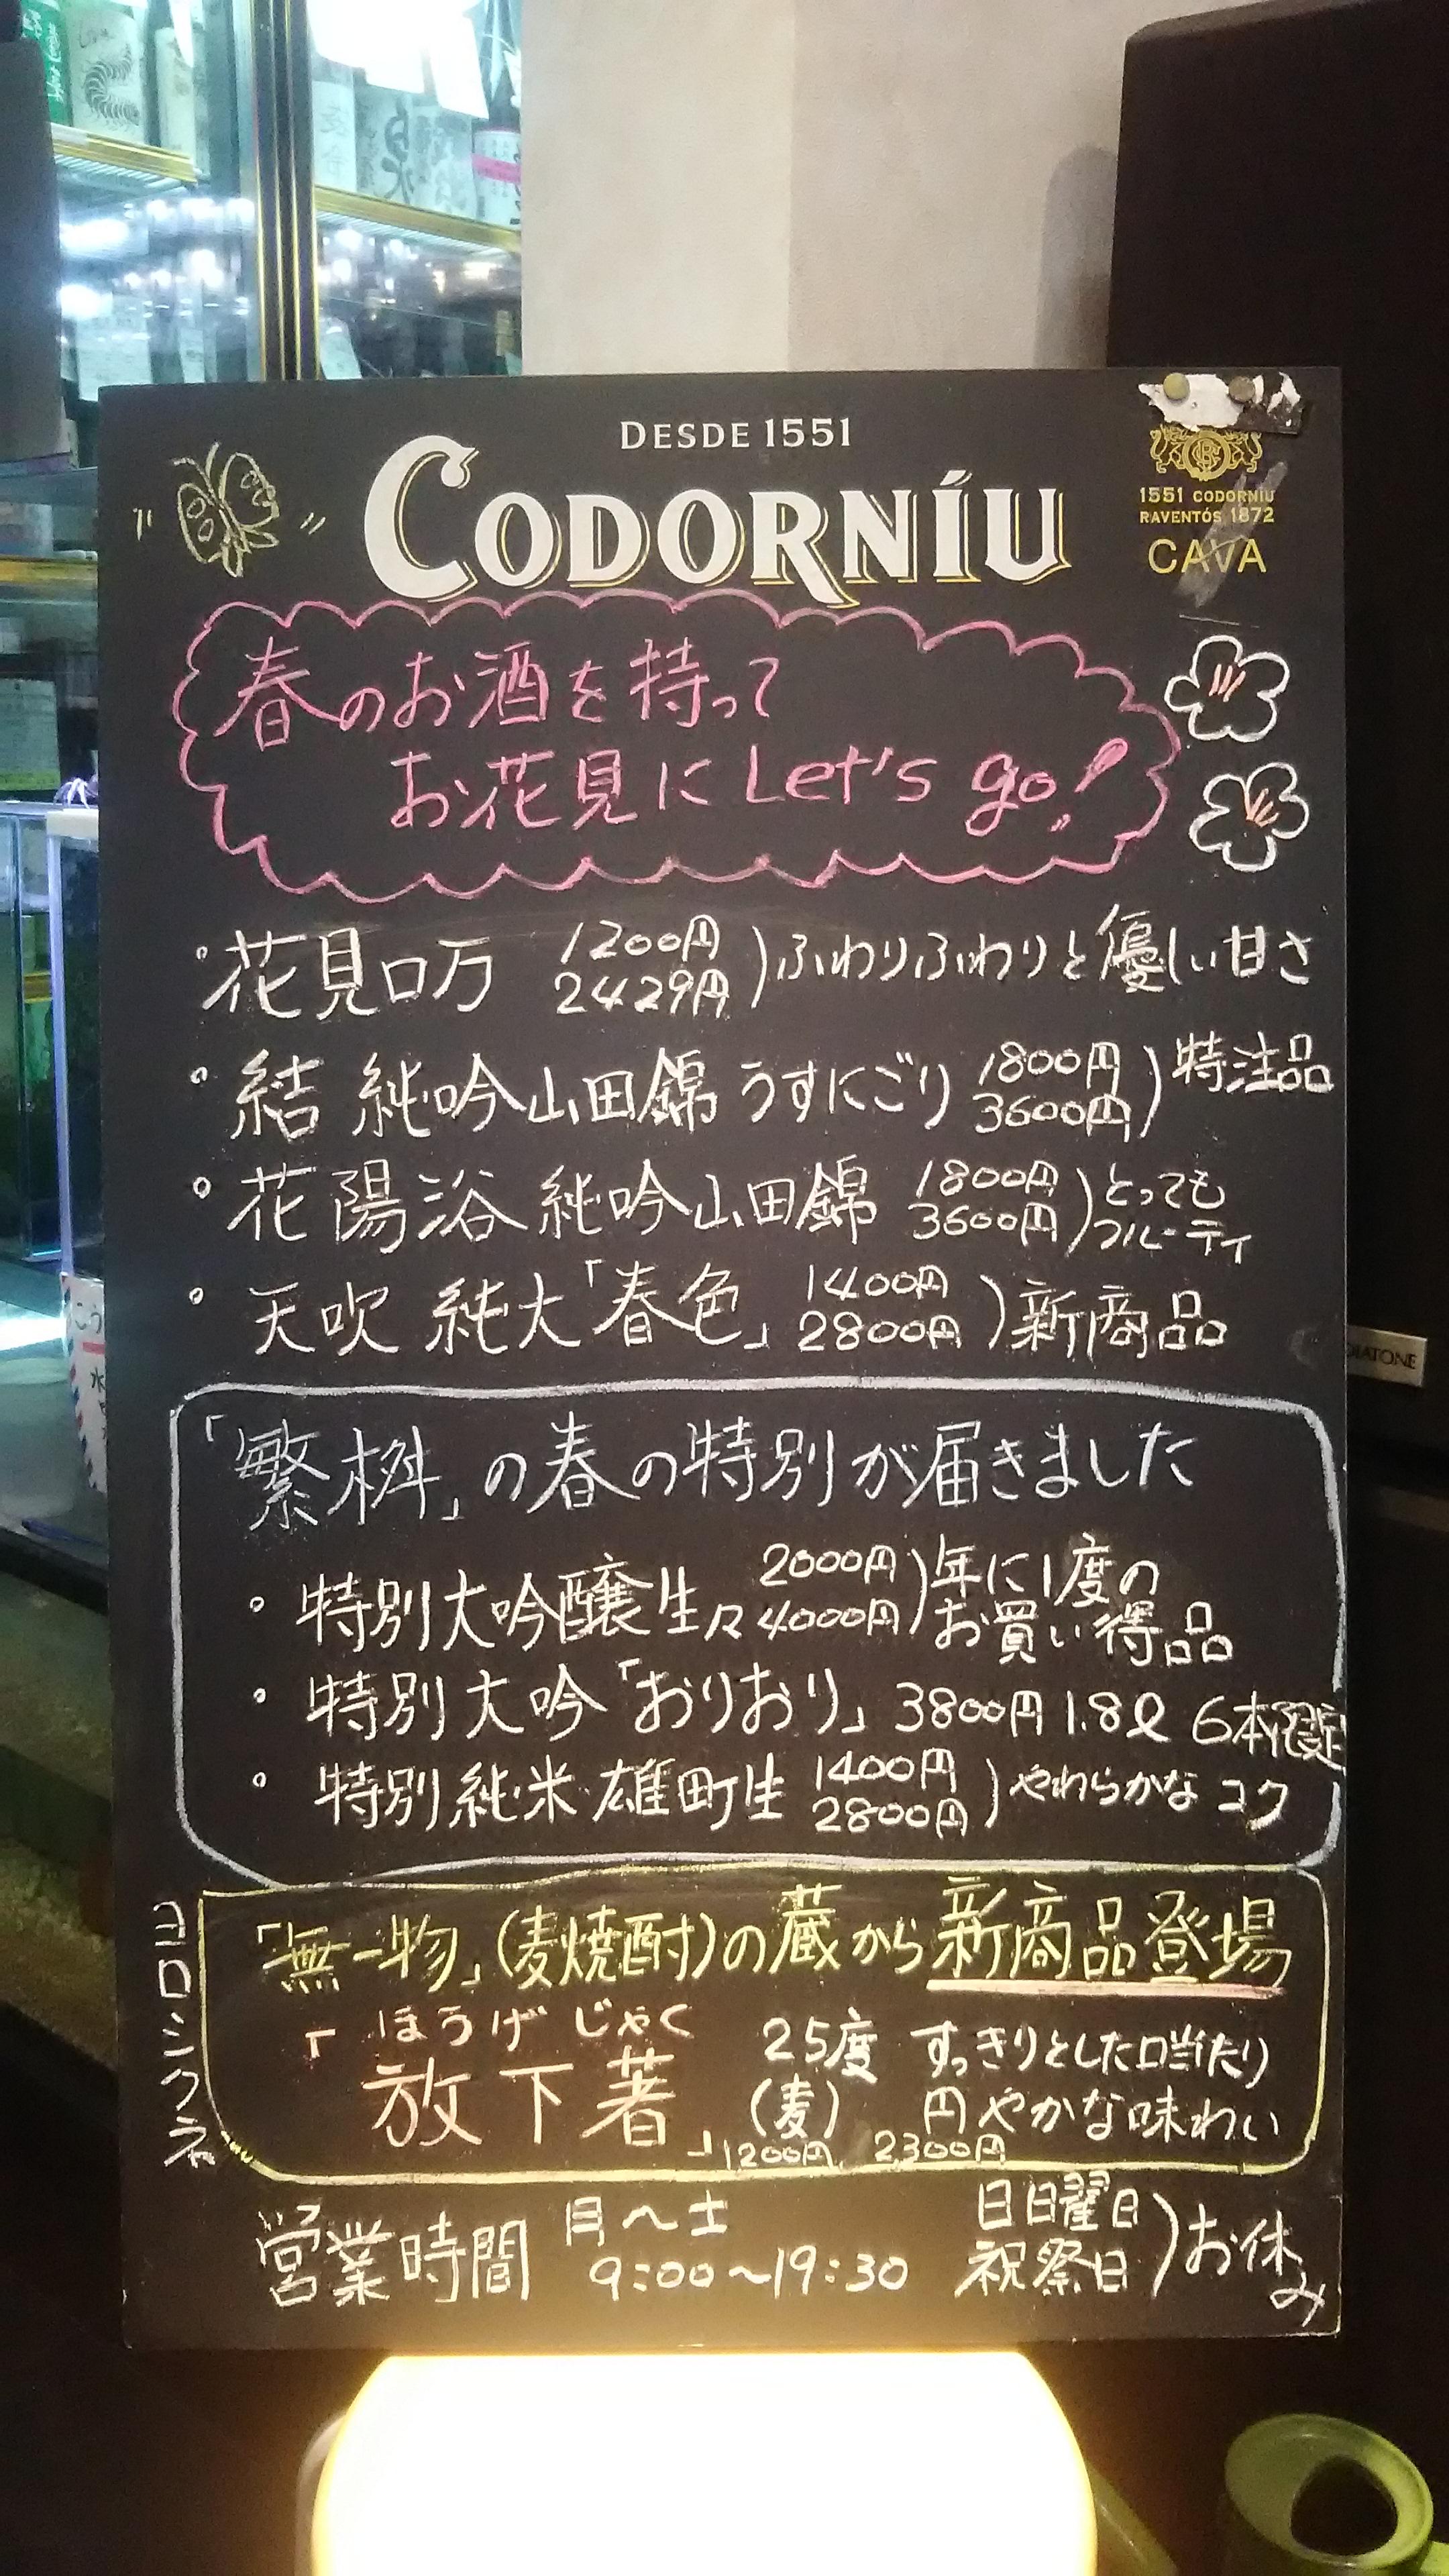 DESDE 1551
CODORNÍU
1551 CODORNÍU
RAVENTÓS 1872
CAVA
春のお酒を持って
お花見にLet's go!
・花見ロ万 1200円 2429円)ふわりふわりと優しい甘さ
・結 純吟山田錦 うすにごり 1800円 3600円)特注品
・花陽浴 純吟山田錦 1800円 3600円)とってもフルーティ
・天吹 純大「春色」 1400円 2800円)新商品
「繁桝」の春の特別が届きました
・特別大吟醸生々 2000円 4000円)年に1度のお買い得品
・特別大吟「おりおり」 3800円 1.8ℓ 6本限定
・特別純米 雄町生 1400円 2800円)やわらかなコク
ヨロシクネ
「無一物」(麦焼酎)の蔵から新商品登場
ほうげじゃく
「放下著」 25度 すっきりとした口当たり
(麦) 円やかな味わい
1200円 2,300円
営業時間 月〜土 9:00〜19:30 日日曜日 祝祭日)お休み
DIATONE